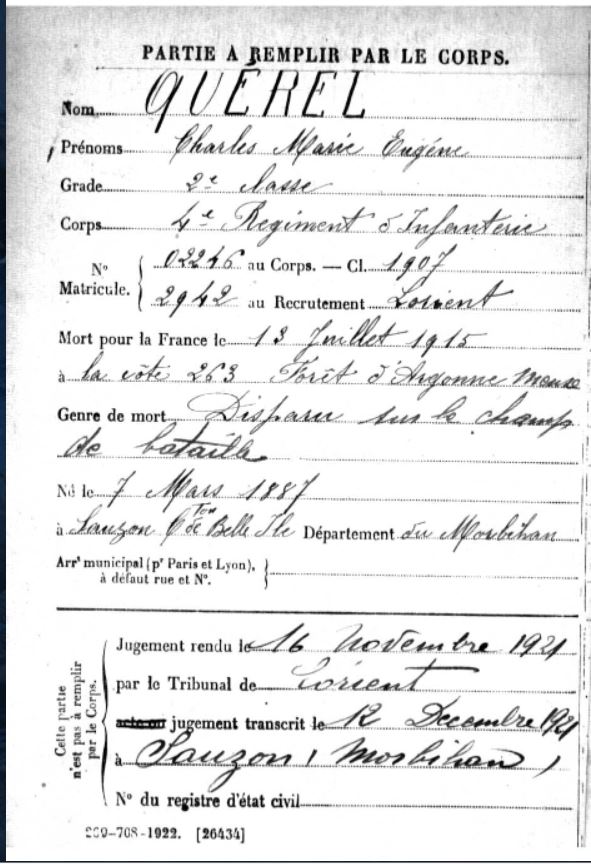 PARTIE À REMPLIR PAR LE CORPS.
Nom QUÉREL
Prénoms Charles Marie Eugène
Grade 2e classe
Corps 4e Régiment d'Infanterie
No Matricule. { 02246 au Corps. — Cl. 1907
2942 au Recrutement Lorient
Mort pour la France le 13 Juillet 1915
à la côte 263 Forêt d'Argonne Meuse
Genre de mort Disparu sur le champ
de bataille
Né le 7 Mars 1887
à Sauzon Con de Belle Ile Département du Morbihan
Arrt municipal (pr Paris et Lyon), à défaut rue et No. }
Cette partie n'est pas à remplir par le Corps.
Jugement rendu le 16 Novembre 1921
par le Tribunal de Lorient
acte ou jugement transcrit le 12 Decembre 1921
à Sauzon (Morbihan)
No du registre d'état civil
-708-1922. [26434]